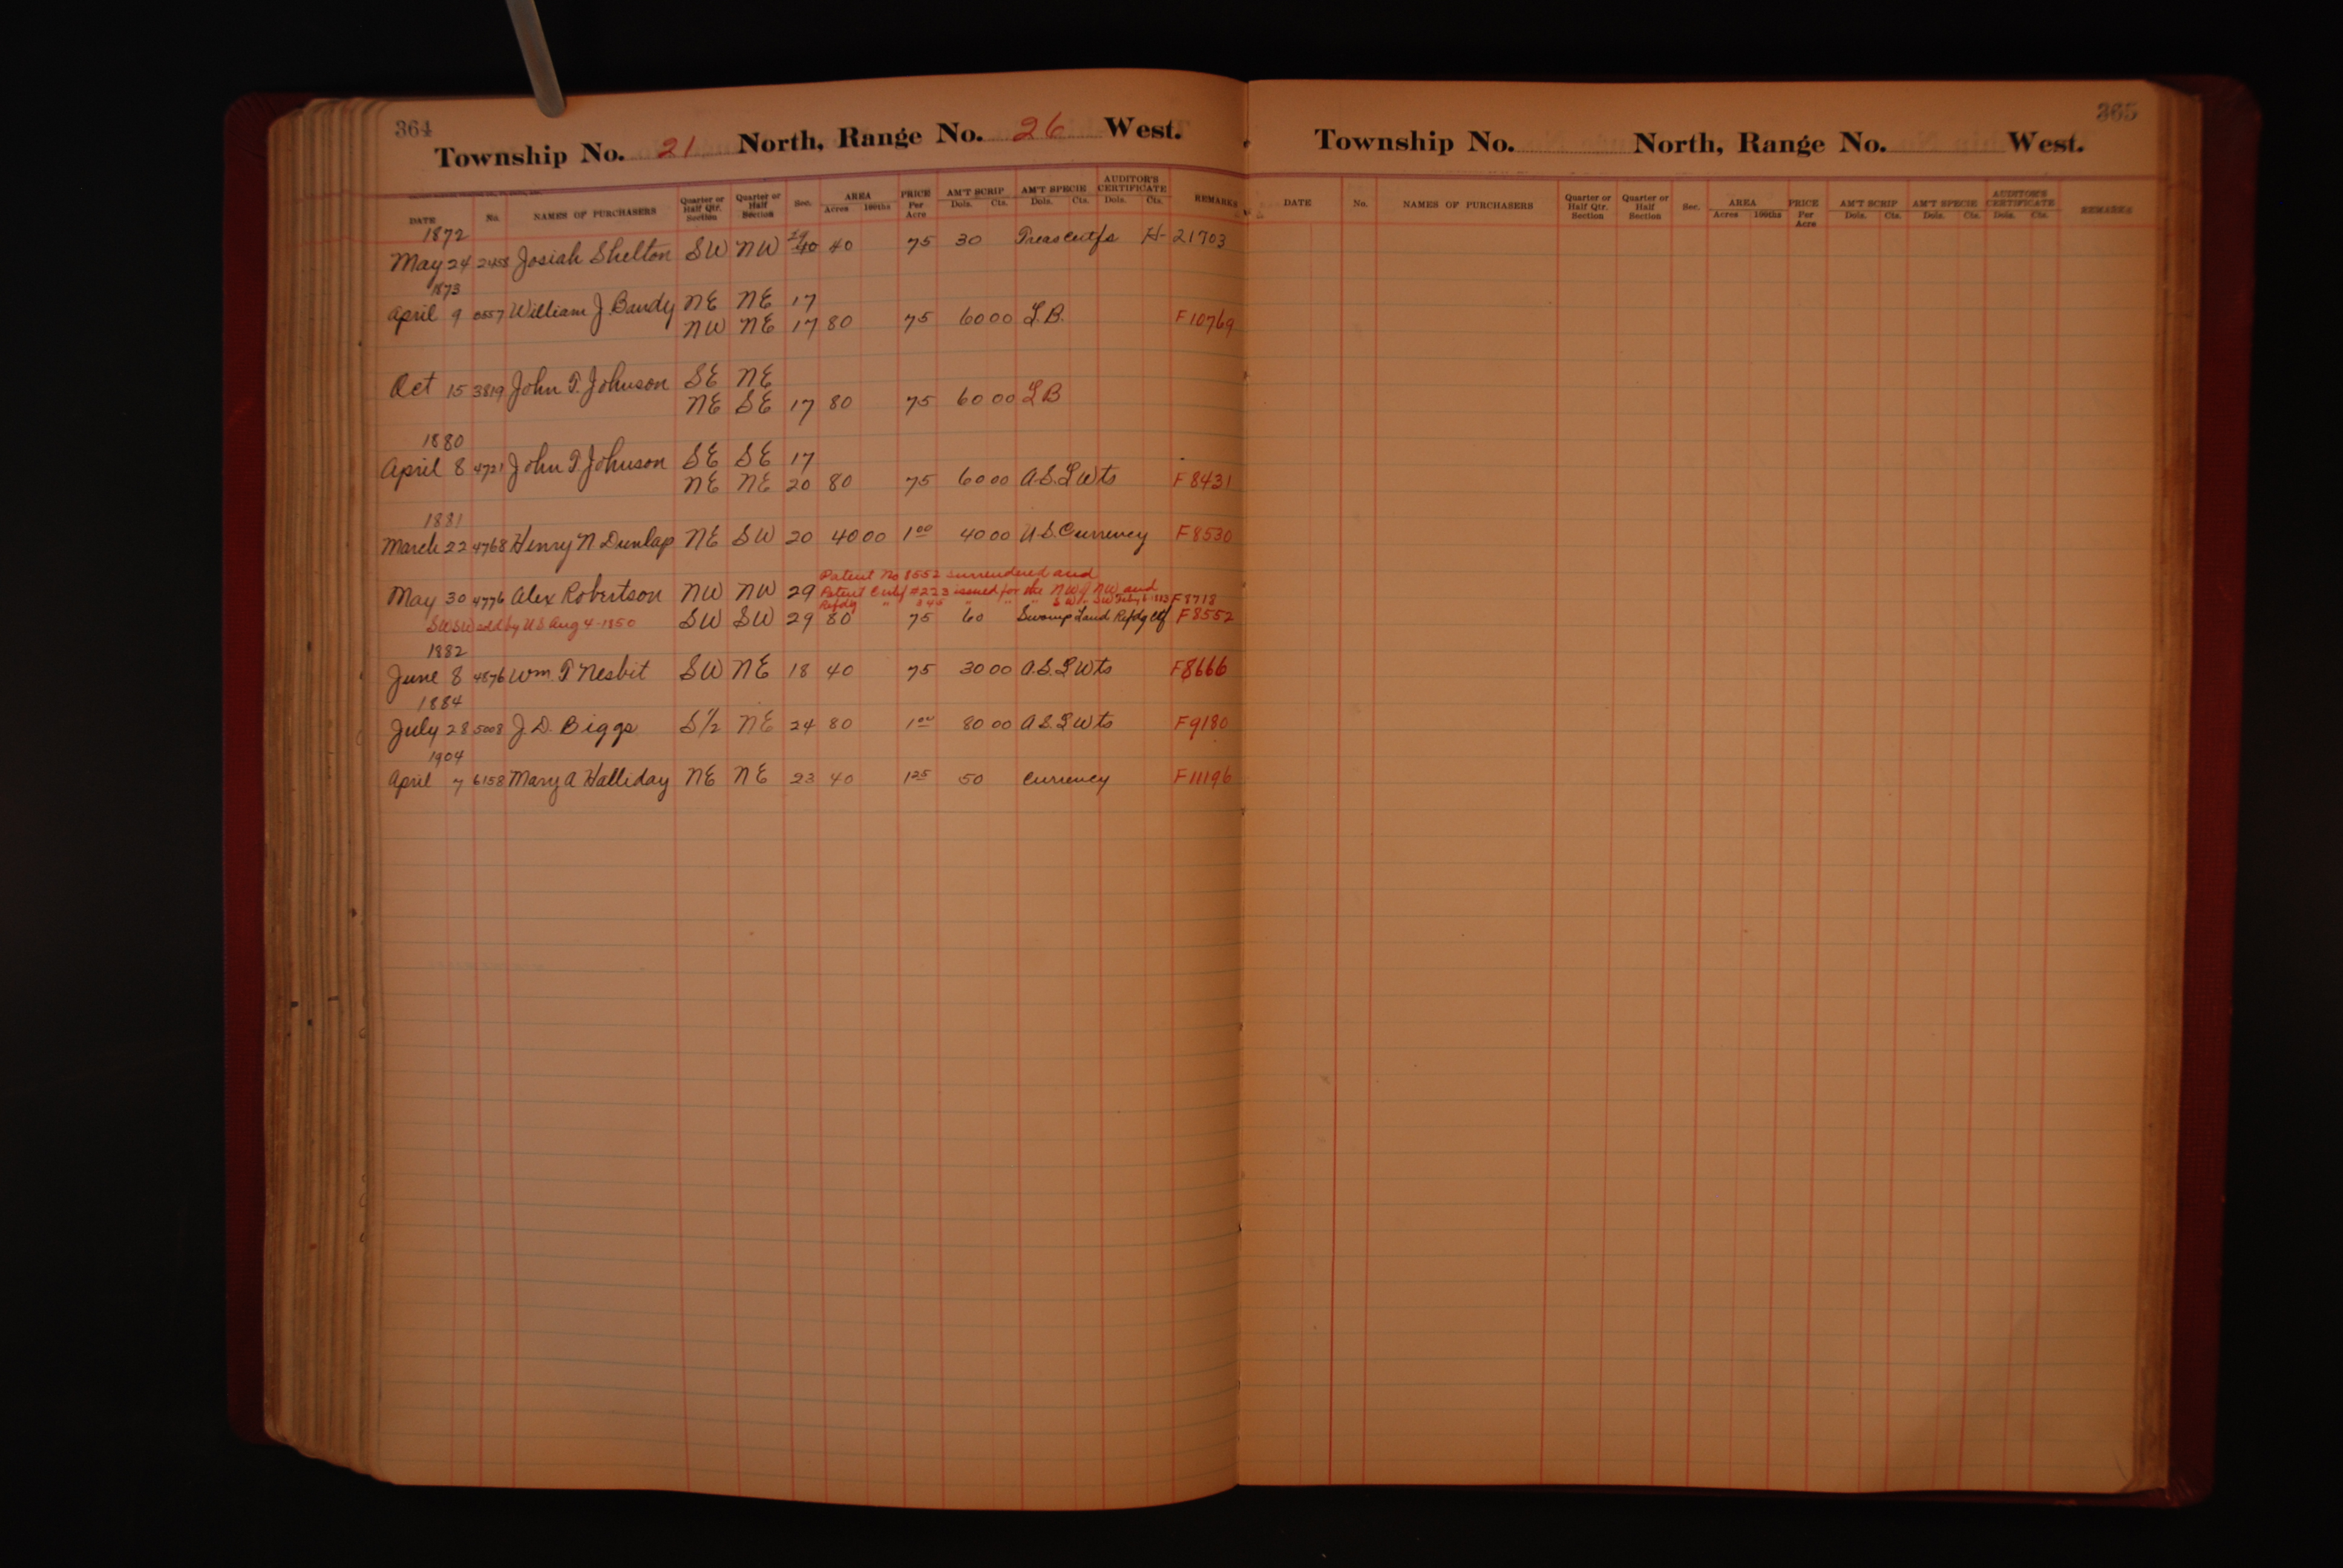 364
Township No. 21 North, Range No. 26 West.
DATE No. NAMES OF PURCHASERS Quarter or Half Qtr. Section Quarter or Half Section Sec. AREA Acres 100ths PRICE Per Acre AM'T SCRIP Dols. Cts. AM'T SPECIE Dols. Cts. AUDITOR'S CERTIFICATE Dols. Cts. REMARKS
1872
May 24 2458 Josiah Shelton SW NW 40 75 30 Treas Certfs H- 21703
1873
April 9 William J. Bandy NE NE 17
NW NE 17 80 75 60 00 L.B. F 10769
Oct 15 3819 John T. Johnson SE NE
NE SE 17 80 75 60 00 L B
1880
April 8 4721 John T. Johnson SE SE 17
NE NE 20 80 75 60 00 A.S.L Wts F 8431
1881
March 22 4768 Henry N Dunlap NE SW 20 40 00 1 00 40 00 U.S. Currency F 8530
Patent No 8552 surrendered and
May 30 4776 Alex Robertson NW NW 29 Patent Certf #223 issued for the NW of NW and
Refdg " " " " SW " SW F 8718
SW SW sold by U S Aug 4-1850 SW SW 29 80 75 60 Swamp Land Refdg Ctf F 8552
1882
June 8 4876 Wm. T Nesbit SW NE 18 40 75 30 00 A.S.L Wts F 8666
1884
July 28 5008 J. D. Biggs S 1/2 NE 24 80 1 00 80 00 A S. L Wts F 9180
1904
April 7 6158 Mary A Halliday NE NE 23 40 1 25 50 Currency F 11196
365
Township No. North, Range No. West.
DATE No. NAMES OF PURCHASERS Quarter or Half Qtr. Section Quarter or Half Section Sec. AREA Acres 100ths PRICE Per Acre AM'T SCRIP Dols. Cts. AM'T SPECIE Dols. Cts. AUDITOR'S CERTIFICATE Dols. Cts. REMARKS